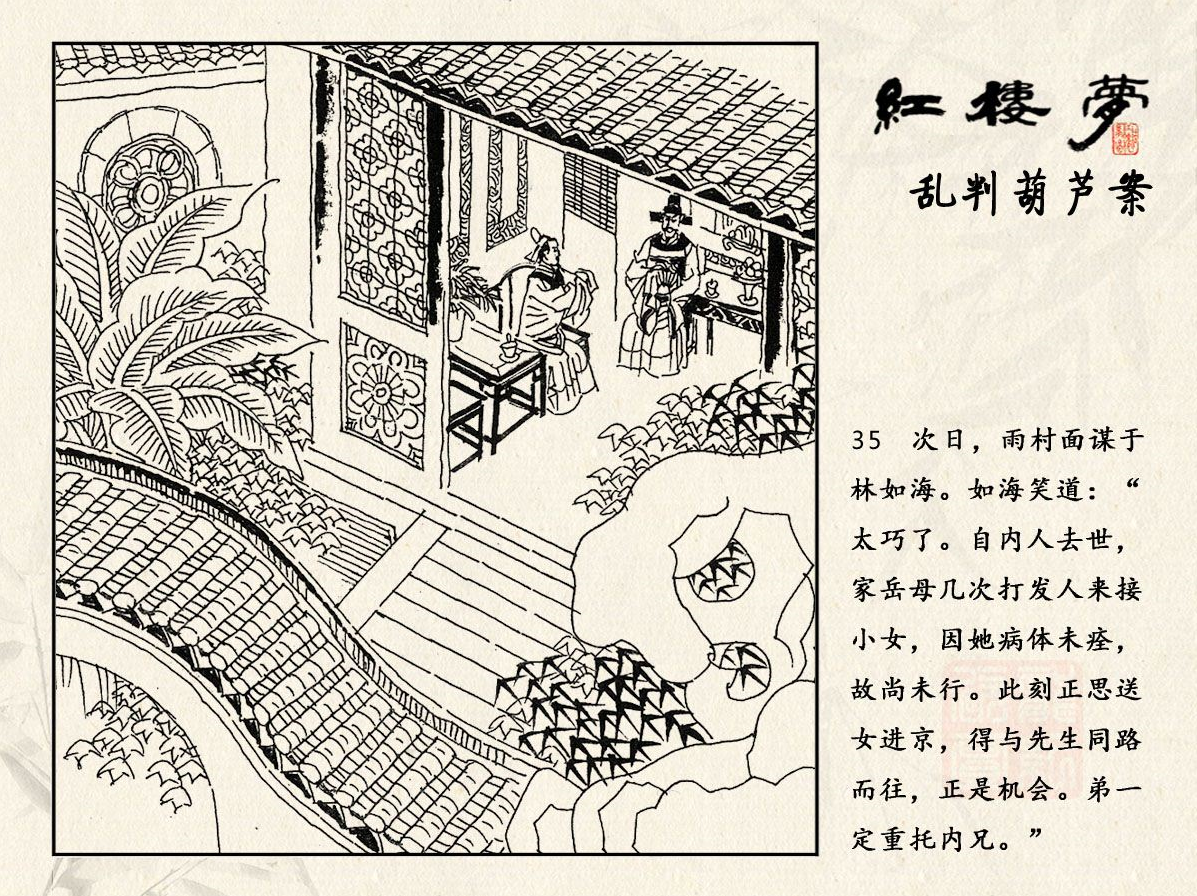 紅樓夢
乱判葫芦案
35 次日，雨村面谋于
林如海。如海笑道：“
太巧了。自内人去世，
家岳母几次打发人来接
小女，因她病体未痊，
故尚未行。此刻正思送
女进京，得与先生同路
而往，正是机会。弟一
定重托内兄。”